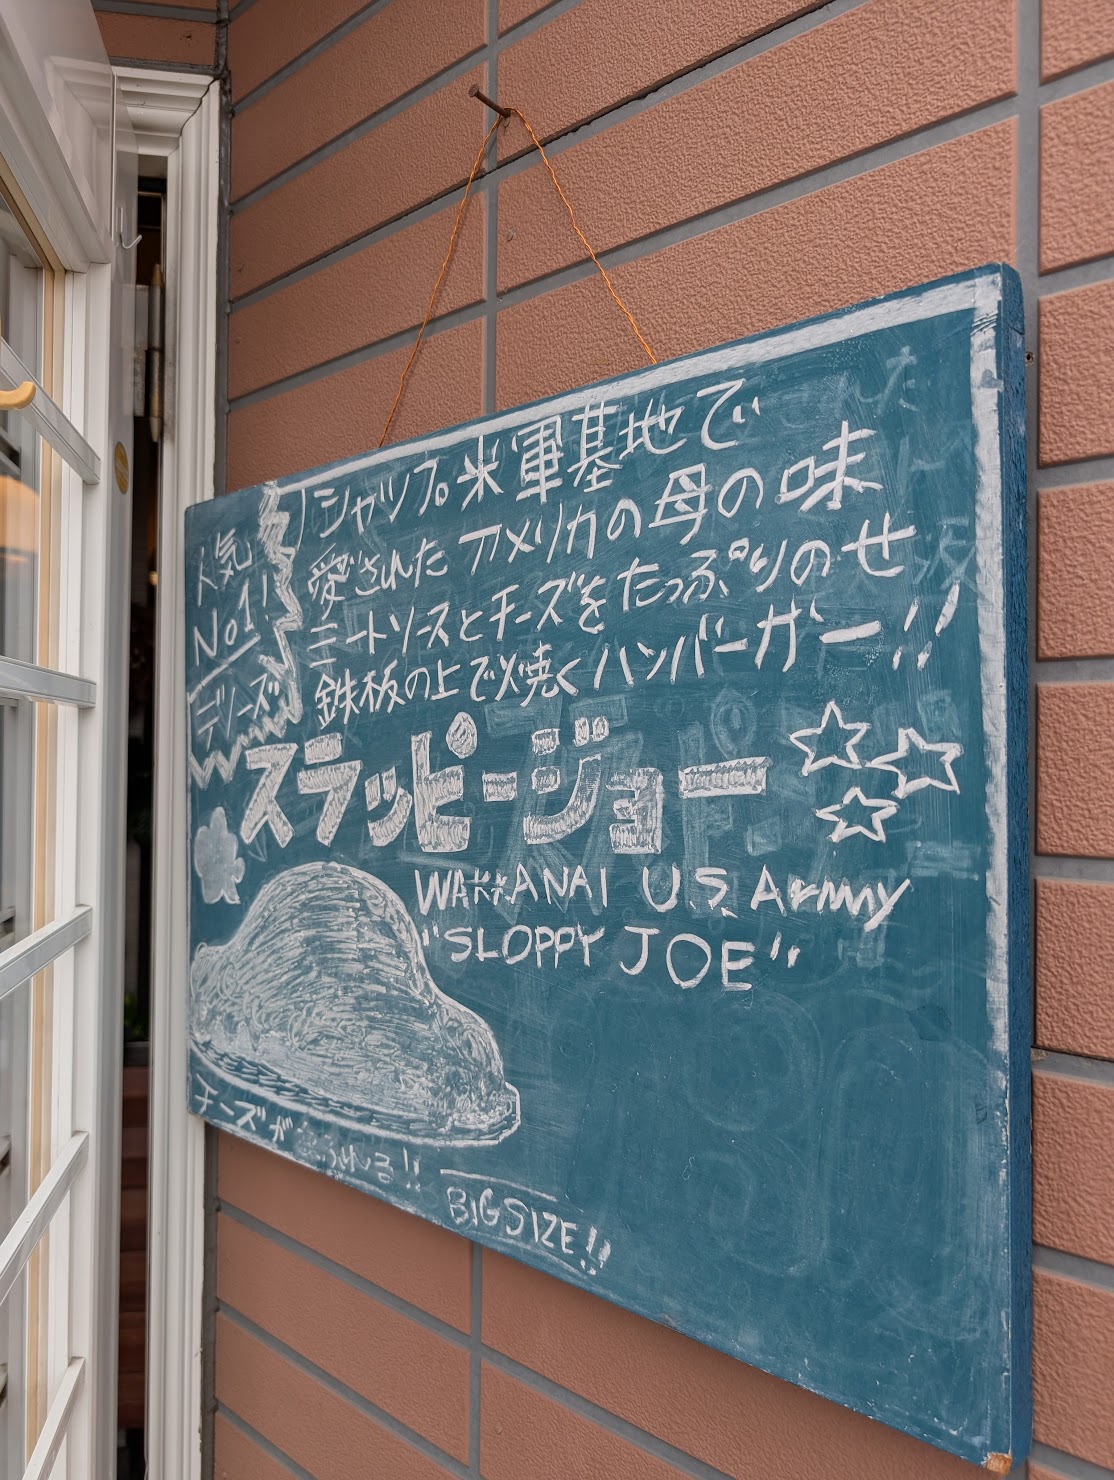 人気
No1!
シリーズ
シャップ。米軍基地で
愛されたアメリカの母の味
ミートソースとチーズをたっぷりのせ
鉄板の上で焼くハンバーガー!!
スラッピージョー
WAKKANAI U.S. Army
"SLOPPY JOE"
チーズがあふれる!!
BIG SIZE!!